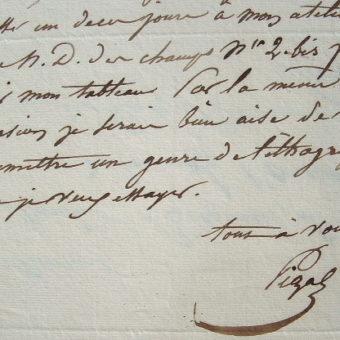 un deux jours à mon ateli
N. D. des champs N.er 2 bis
mon tableau Par la même
je serai bien aise de
mettre un genre de lithogr
je veux essayer.
tout à vou
Pigal